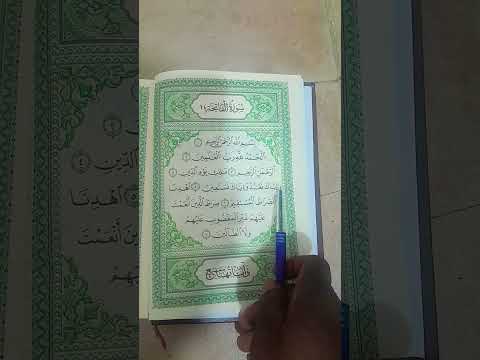 سورة الفاتحة
بسم الله الرحمن الرحيم ١
الحمد لله رب العلمين ٢
الرحمن الرحيم ٣ ملك يوم الدين ٤
إياك نعبد وإياك نستعين ٥ اهدنا
الصراط المستقيم ٦ صراط الذين أنعمت
عليهم غير المغضوب عليهم
ولا الضالين ٧